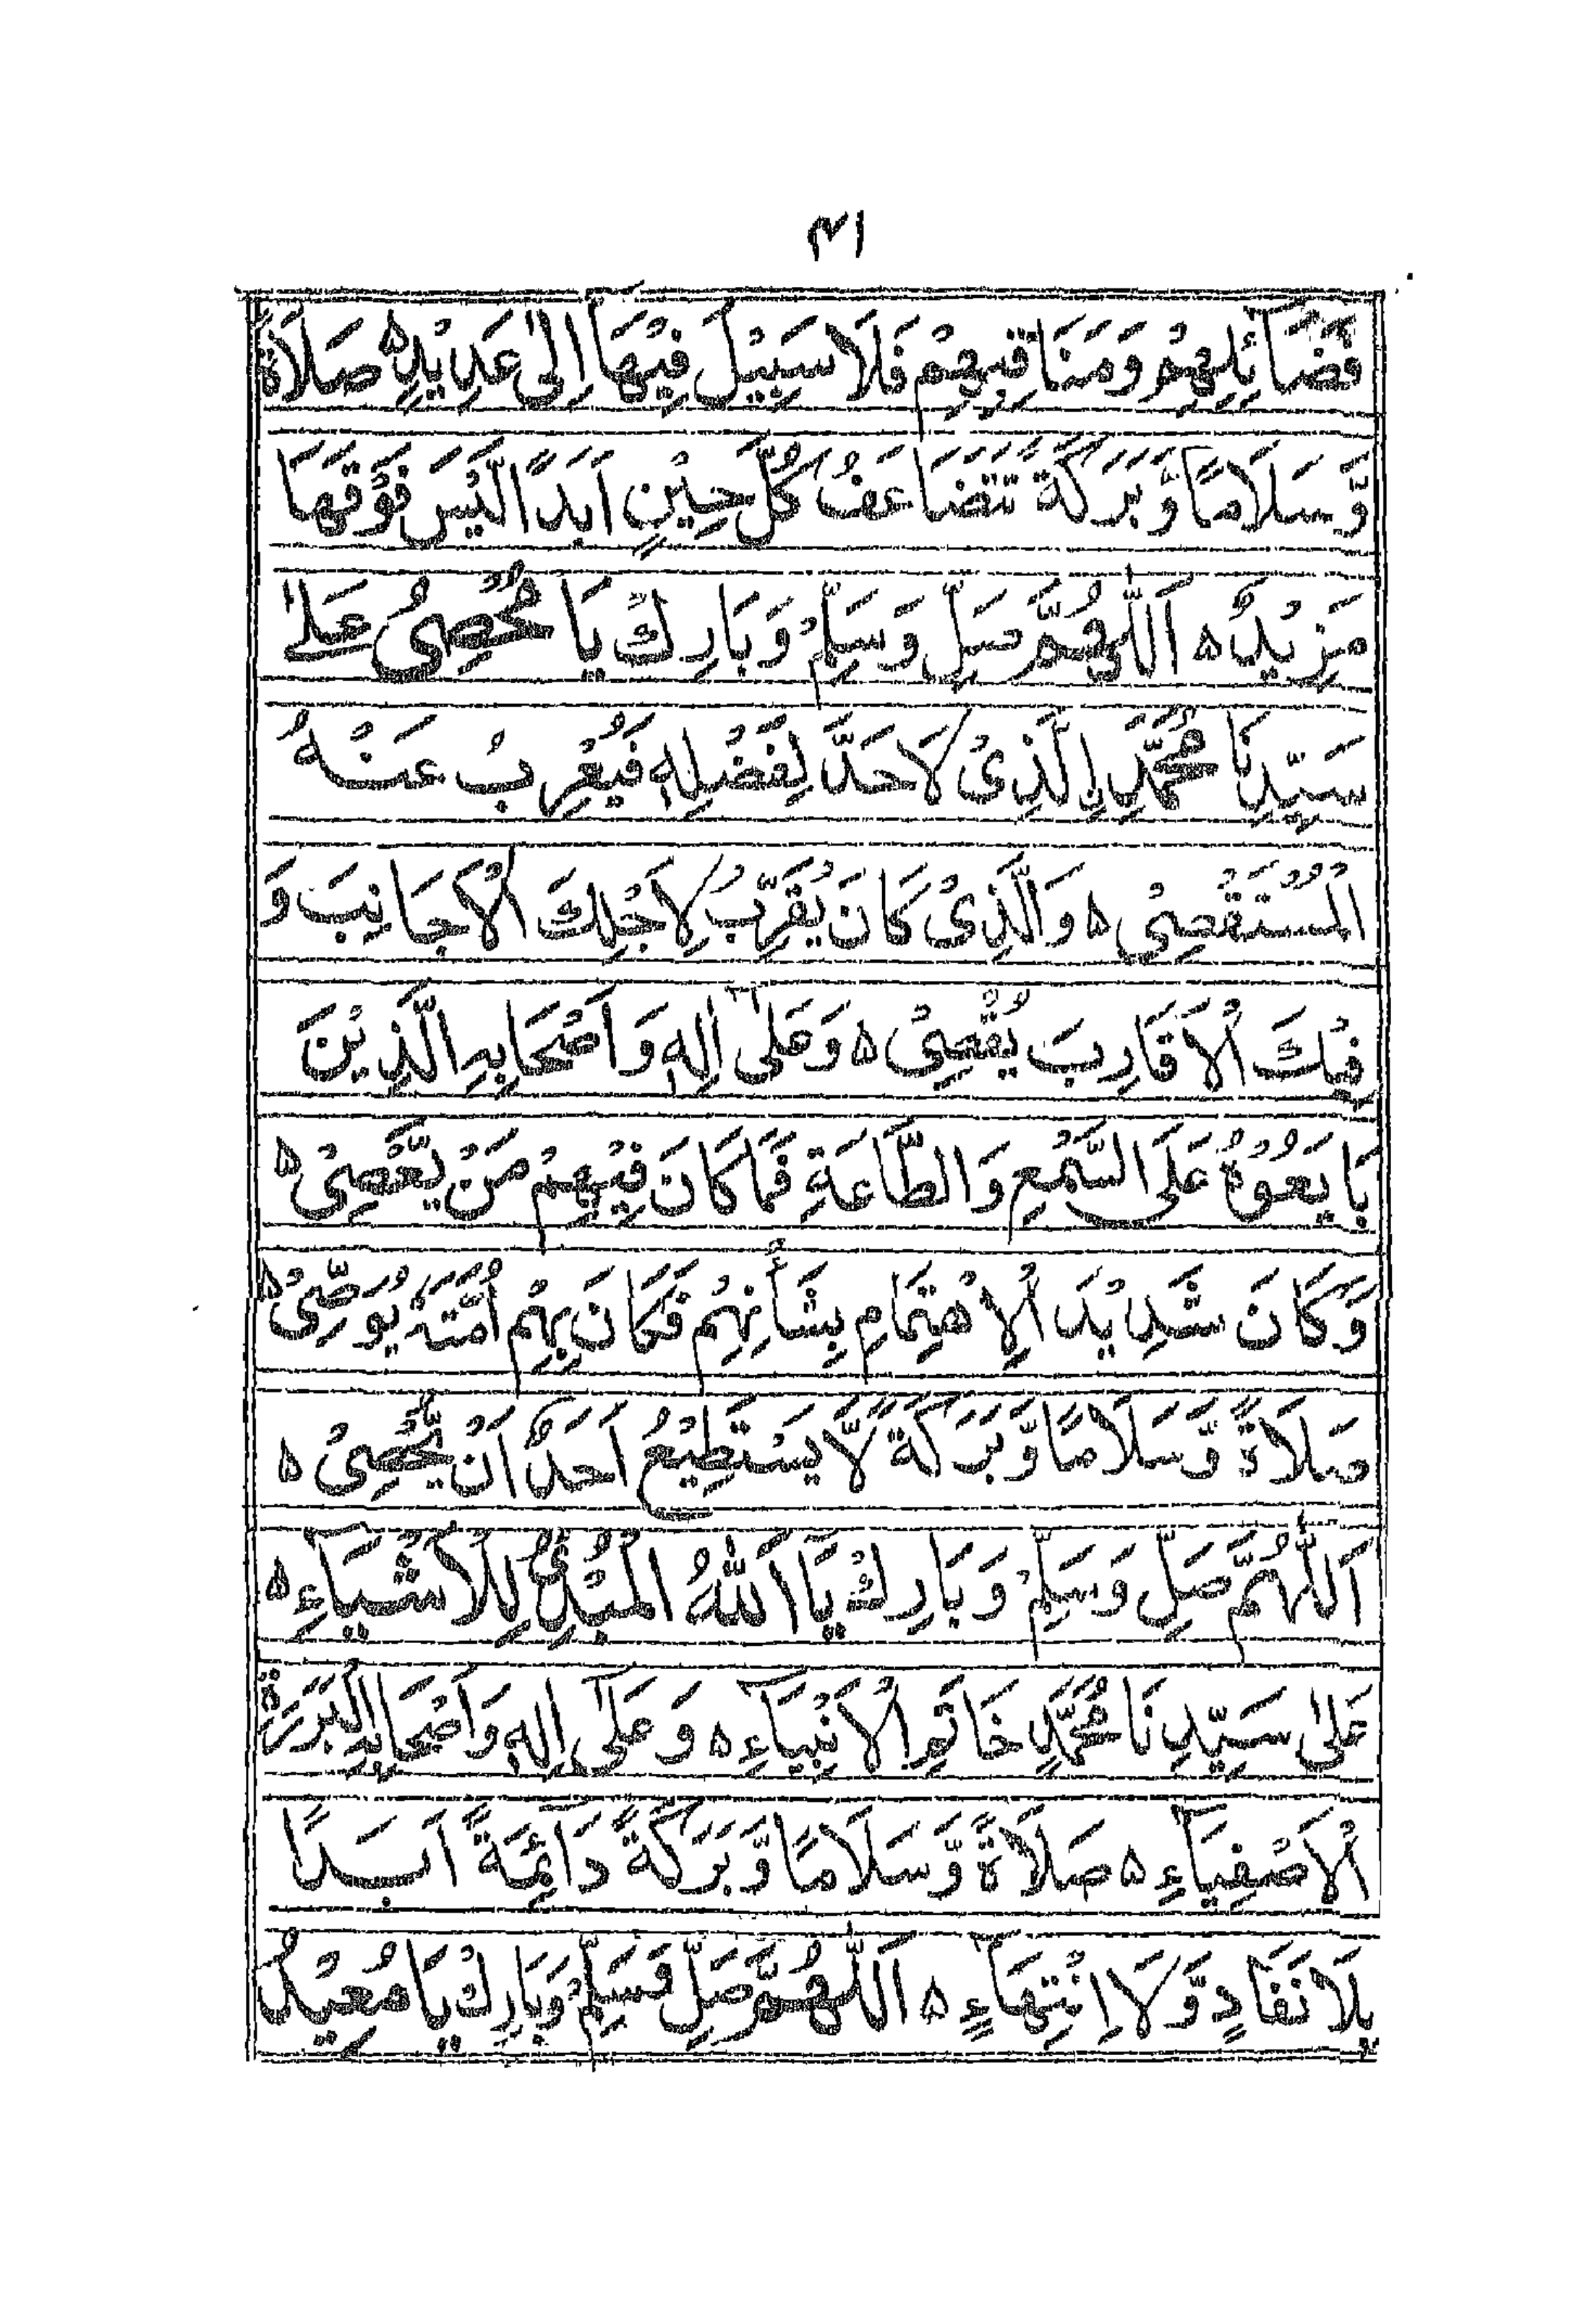 ٣١
فَضَآئِلِهِمْ وَمَنَاقِبِهِمْ فَلَا سَبِيْلَ فِيْهَا اِلٰى عَدِيْدِ ۵ صَلَاةً
وَّسَلَامًا وَّبَرَكَةً تَتَضَاعَفُ كُلَّ حِيْنٍ اَبَدًا لَّيْسَ فَوْقَهَا
مَزِيْدٌ ۵ اَللّٰهُمَّ صَلِّ وَسَلِّمْ وَبَارِكْ يَا مُحْصِىُ عَلٰى
سَيِّدِنَا مُحَمَّدِ ۣالَّذِىْ لَاحَدَّ لِفَضْلِهٖ فَيُعْرِبُ عَنْهُ
الْمُسْتَقْصِىْ ۵ وَالَّذِىْ كَانَ يُقَرِّبُ لِاَجْلِكَ الْاَجَانِبَ وَ
فِيْكَ الْاَقَارِبَ يُقْصِىْ ۵ وَعَلٰٓى اٰلِهٖ وَاَصْحَابِهِ الَّذِيْنَ
بَايَعُوْهُ عَلَى السَّمْعِ وَالطَّاعَةِ فَمَا كَانَ فِيْهِمْ مَنْ يَّعْصِىْ ۵
وَكَانَ شَدِيْدَ الْاِهْتِمَامِ بِشَأْنِهِمْ فَكَانَ بِهِمْ اُمَّتَهٗ يُوَصِّىْ ۵
صَلَاةً وَّسَلَامًا وَّبَرَكَةً لَّا يَسْتَطِيْعُ اَحَدٌ اَنْ يُّحْصِىْ ۵
اَللّٰهُمَّ صَلِّ وَسَلِّمْ وَبَارِكْ يَآ اَللّٰهُ الْمُبْدِئُ لِلْاَشْيَآءِ ۵
عَلٰى سَيِّدِنَا مُحَمَّدٍ خَاتَمِ الْاَنْبِيَآءِ ۵ وَعَلٰٓى اٰلِهٖ وَاَصْحَابِهِ الْبَرَرَةِ
الْاَصْفِيَآءِ ۵ صَلَاةً وَّسَلَامًا وَّبَرَكَةً دَآئِمَةً اَبَدًا
بِلَا نَفَادٍ وَّلَا اِنْتِهَآءٍ ۵ اَللّٰهُمَّ صَلِّ وَسَلِّمْ وَبَارِكْ يَا مُعِيْدُ